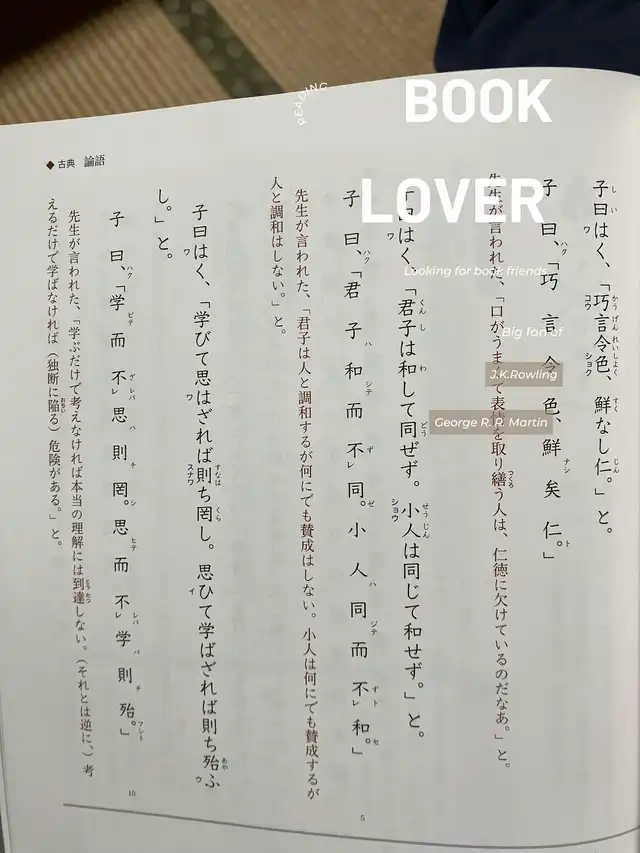 READING
BOOK
LOVER
Looking for book friends
Big fan of
J.K.Rowling
George R.R. Martin
◆古典 論語
子曰はく、「巧言令色、鮮なし仁。」と。
子曰、「巧言令色、鮮矣仁。」
先生が言われた、「口がうまくて表情を取り繕う人は、仁徳に欠けているのだなあ。」と。
子曰はく、「君子は和して同ぜず。小人は同じて和せず。」と。
子曰、「君子和而不レ同。小人同而不レ和。」
先生が言われた、「君子は人と調和するが何にでも賛成はしない。小人は何にでも賛成するが
人と調和はしない。」と。
子曰はく、「学びて思はざれば則ち罔し。思ひて学ばざれば則ち殆ふ
し。」と。
子曰、「学而不レ思則罔。思而不レ学則殆。」
先生が言われた、「学ぶだけで考えなければ本当の理解には到達しない。（それとは逆に、）考
えるだけで学ばなければ（独断に陥る）危険がある。」と。
5
10